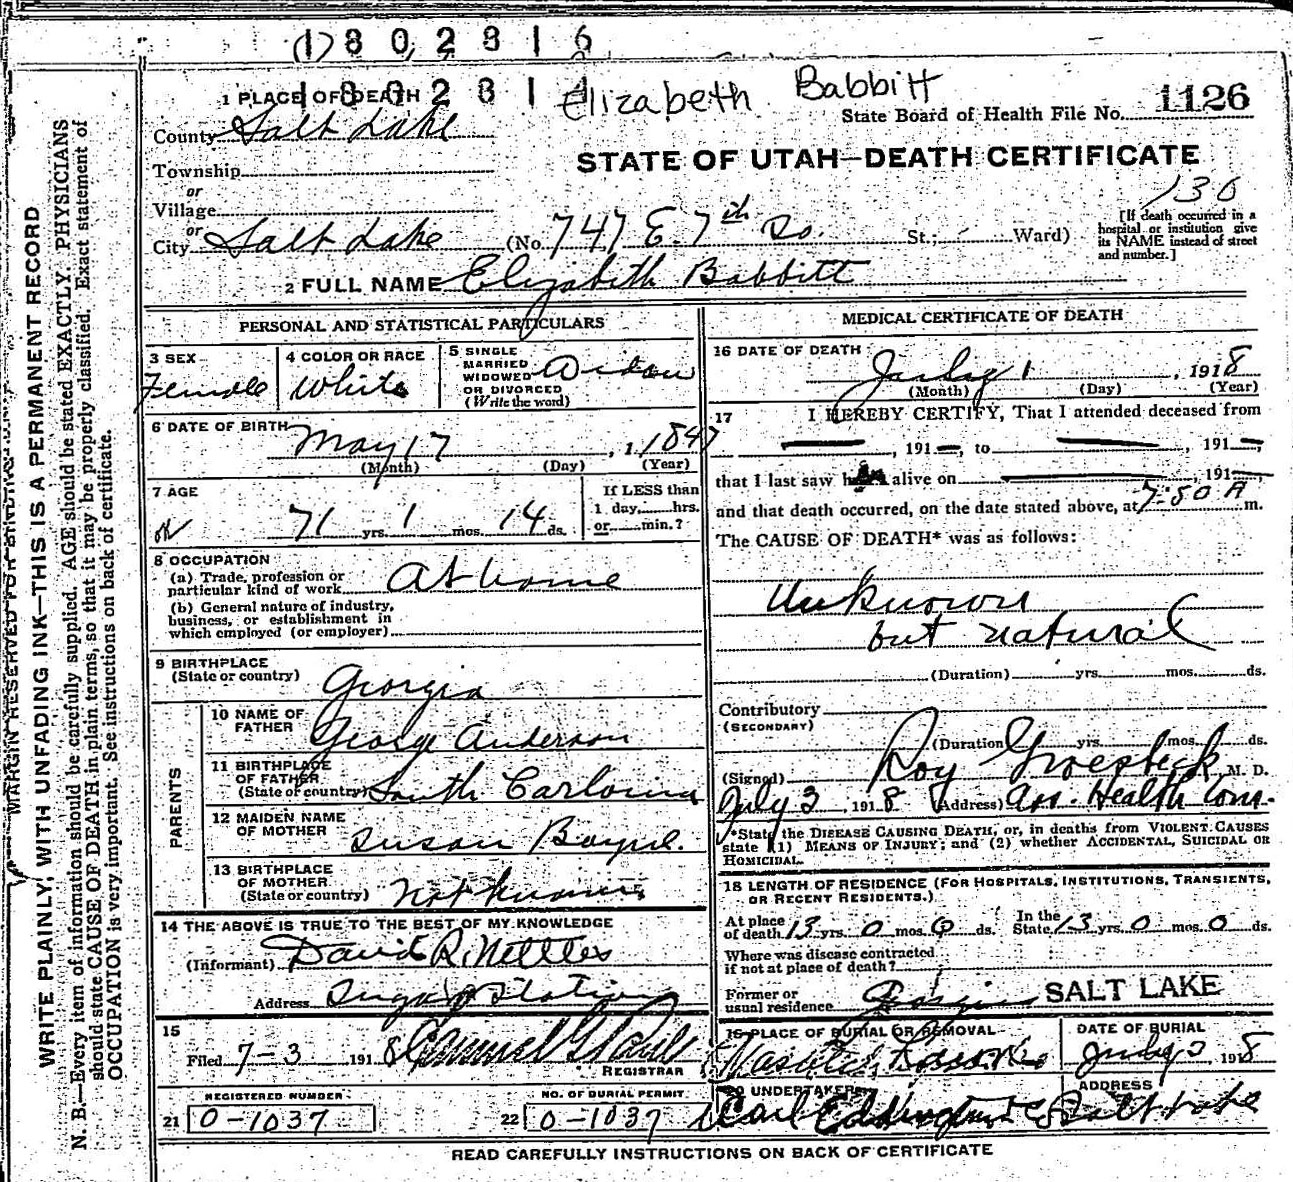 1802816
180281
Elizabeth Babbitt
1 PLACE OF DEATH
State Board of Health File No. 1126
County Salt Lake
STATE OF UTAH—DEATH CERTIFICATE
Township
or
Village
or
City Salt Lake (No. 747 E. 7th So. St.; Ward)
136
[If death occurred in a hospital or institution give its NAME instead of street and number.]
2 FULL NAME Elizabeth Babbitt
PERSONAL AND STATISTICAL PARTICULARS
3 SEX
Female
4 COLOR OR RACE
White
5 SINGLE
MARRIED
WIDOWED
OR DIVORCED
(Write the word)
Widow
6 DATE OF BIRTH
May 17, 1847
(Month) (Day) (Year)
7 AGE
71 yrs. 1 mos. 14 ds.
If LESS than
1 day, hrs.
or min.?
8 OCCUPATION
(a) Trade, profession or
particular kind of work At home
(b) General nature of industry,
business, or establishment in
which employed (or employer)
9 BIRTHPLACE
(State or country) Georgia
PARENTS
10 NAME OF
FATHER George Anderson
11 BIRTHPLACE
OF FATHER
(State or country) South Carlonia
12 MAIDEN NAME
OF MOTHER Susan
13 BIRTHPLACE
OF MOTHER
(State or country) Not known
14 THE ABOVE IS TRUE TO THE BEST OF MY KNOWLEDGE
(Informant) David R. Nettles
Address Sugar Station
15
Filed 7-3 1918
REGISTRAR
REGISTERED NUMBER
21 0-1037
NO. OF BURIAL PERMIT
22 0-1037
MEDICAL CERTIFICATE OF DEATH
16 DATE OF DEATH
July 1, 1918
(Month) (Day) (Year)
17 I HEREBY CERTIFY, That I attended deceased from
, 191 , to , 191 ,
that I last saw h alive on , 191 ,
and that death occurred, on the date stated above, at 7:50 A m.
The CAUSE OF DEATH* was as follows:
Unknown
but natural
(Duration) yrs. mos. ds.
Contributory
(SECONDARY)
(Duration yrs. mos. ds.
(Signed) Roy Groesbeck, M. D.
July 3 1918 (Address) Ass. Health Com.
*State the DISEASE CAUSING DEATH, or, in deaths from VIOLENT CAUSES
state (1) MEANS OF INJURY; and (2) whether ACCIDENTAL, SUICIDAL OR
HOMICIDAL.
18 LENGTH OF RESIDENCE (FOR HOSPITALS, INSTITUTIONS, TRANSIENTS,
OR RECENT RESIDENTS.)
At place
of death 13 yrs. 0 mos. 0 ds.
In the
State 13 yrs. 0 mos. 0 ds.
Where was disease contracted
if not at place of death?
Former or
usual residence Georgia SALT LAKE
19 PLACE OF BURIAL OR REMOVAL
DATE OF BURIAL
July 3 1918
20 UNDERTAKER
ADDRESS
Salt Lake
READ CAREFULLY INSTRUCTIONS ON BACK OF CERTIFICATE
MARGIN RESERVED FOR BINDING
WRITE PLAINLY, WITH UNFADING INK—THIS IS A PERMANENT RECORD
N. B.—Every item of information should be carefully supplied. AGE should be stated EXACTLY. PHYSICIANS
should state CAUSE OF DEATH in plain terms, so that it may be properly classified. Exact statement of
OCCUPATION is very important. See instructions on back of certificate.